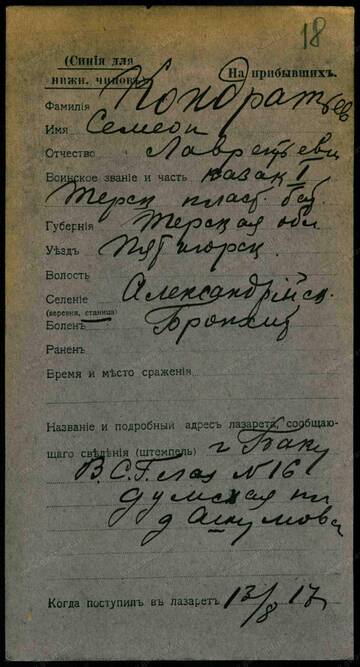 18
(Синія для
нижн. чиновъ)
На прибывшихъ.
Фамилія Кондратьев
Имя Семеон
Отчество Лаврентьеви
Воинское званіе и часть казак I
Терск пласт. бат.
Губернія Терская обл
Уѣздъ Пятигорск.
Волость
Селеніе Александрійск.
(деревня, станица)
Боленъ Бронхит
Раненъ
Время и мѣсто сраженія
Названіе и подробный адресъ лазарета, сообщаю-
щаго свѣдѣнія (штемпель) г Баку
В.С.Г. лаз N 16
думская пл
д Ашумова
Когда поступилъ въ лазаретъ 13/8 17